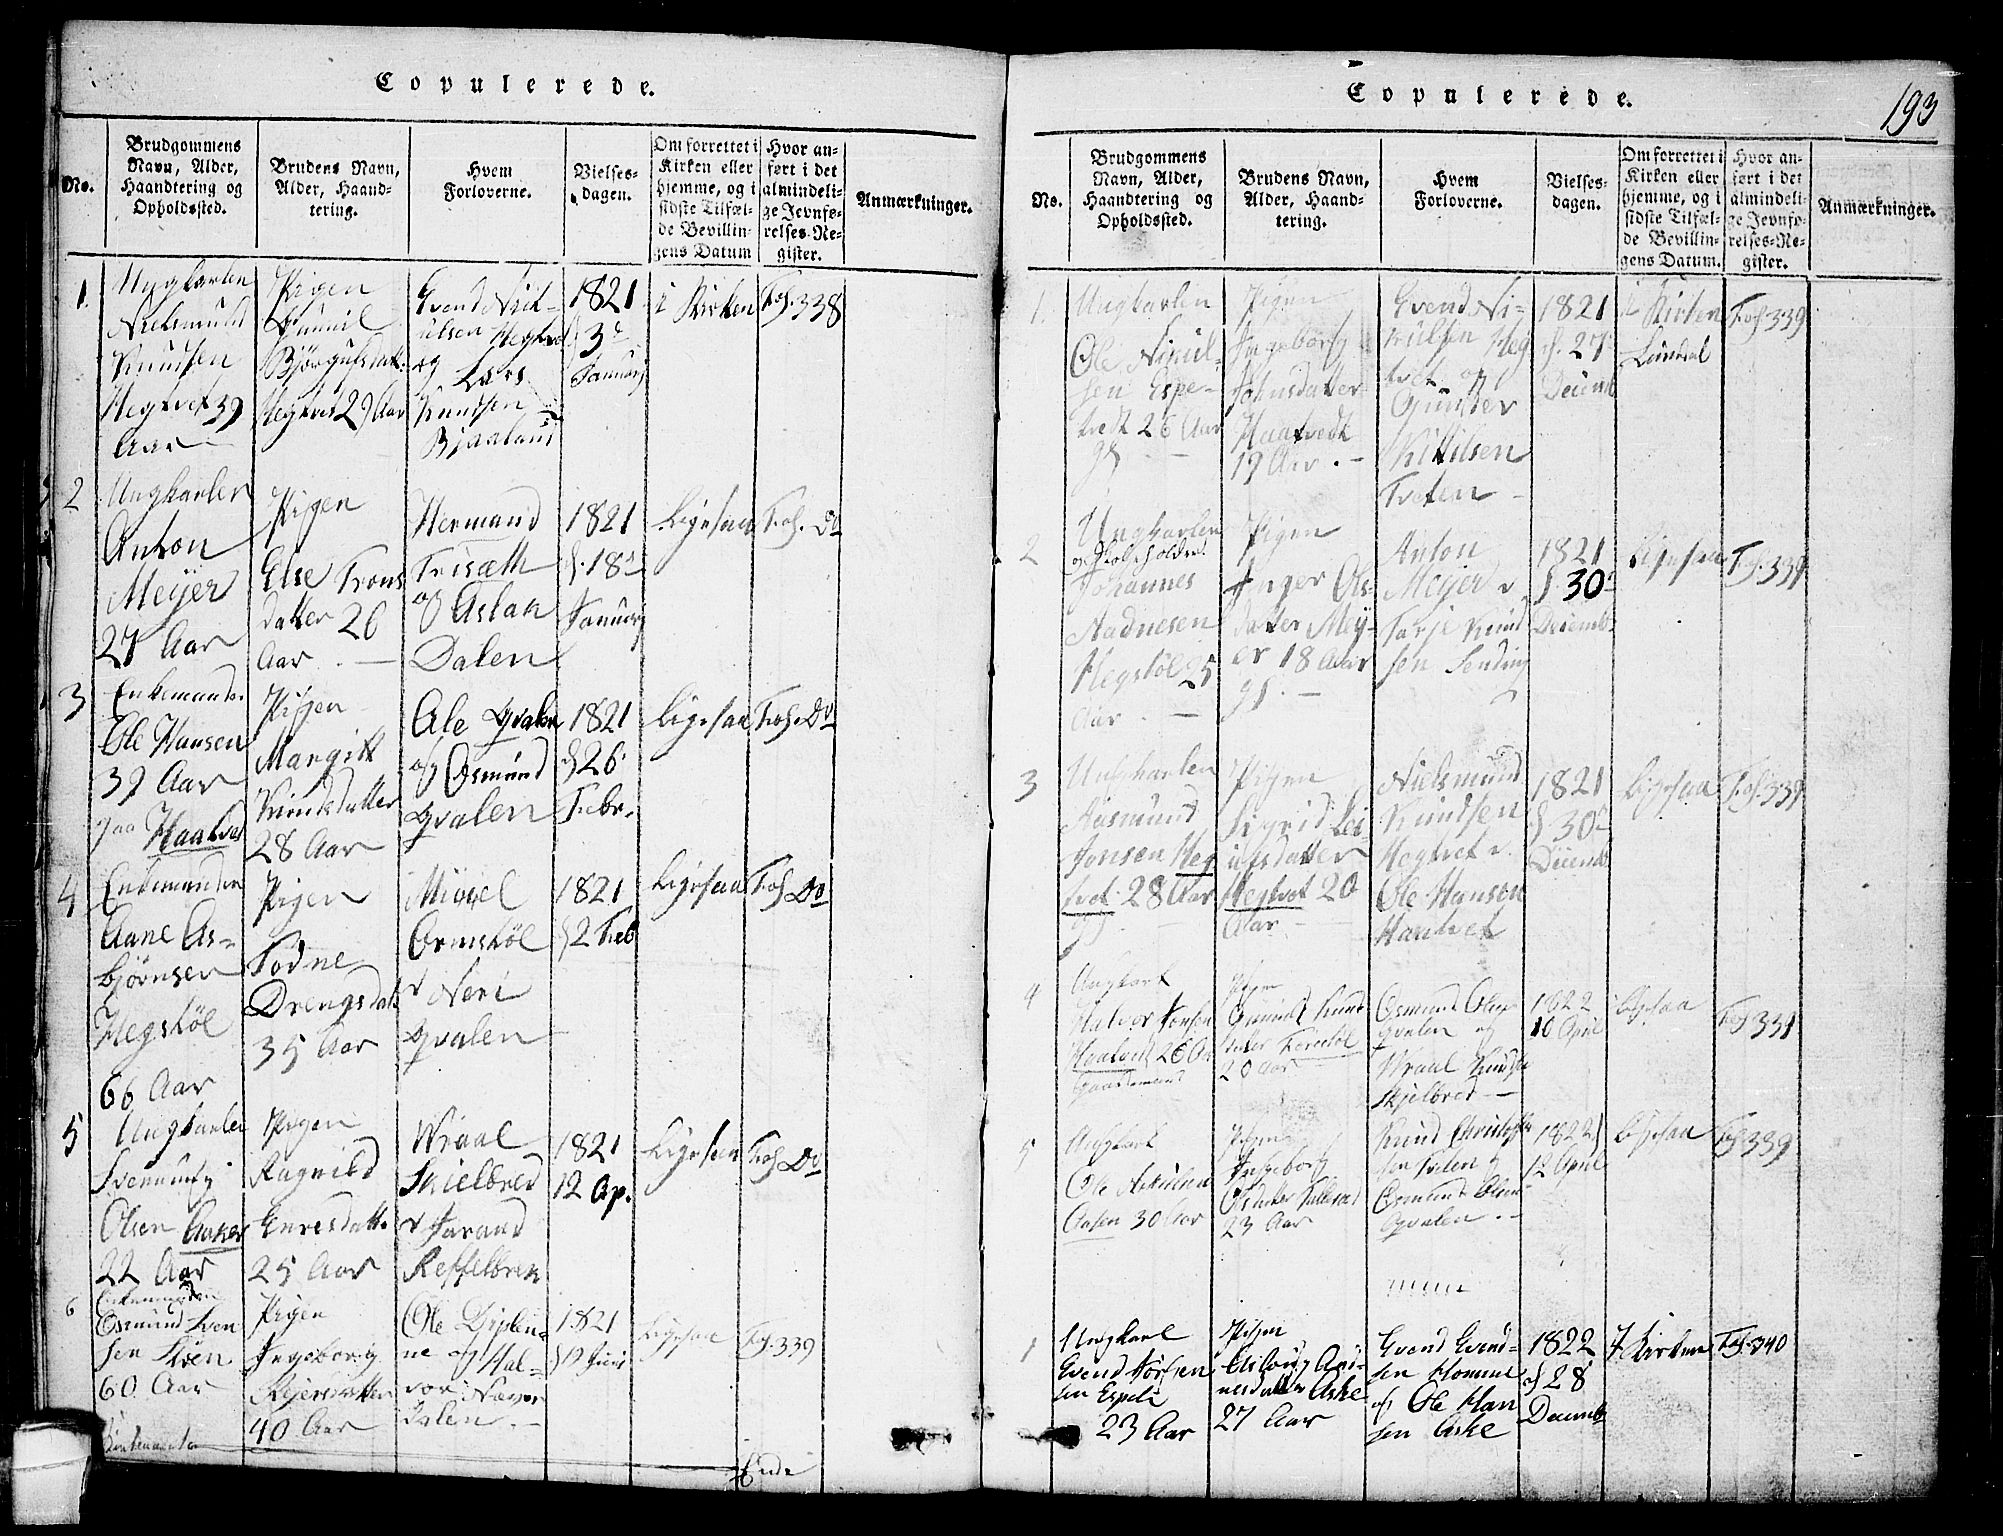 Copulerede.
No.
Brudgommens
Navn, Alder,
Haandtering og
Opholdssted.
Brudens Navn,
Alder, Haand-
tering.
Hvem
Forloverne.
Vielses-
dagen.
Om forrettet i
Kirken eller
hjemme, og i
sidste Tilfæl-
de Bevillin-
gens Datum
Hvor an-
ført i det
almindeli-
ge Jevnfø-
relses-Re-
gister.
Anmærkninger.
1.
Ungkarlen
Nielsmund
Knudsen
Hegtvet 39
Aar
Pigen
Gunnil
Hegtvet 29 Aar
og Lars
Knudsen
Bjaaland
1821
3
Januarj
i Kirken
Fol. 338
2
Ungkarlen
Anton
Meyer
27 Aar
Pigen
Else Trons
datter 26
Aar
Hermand
Trisæth
og Aslak
Dalen
1821
d. 18
Januarj
Ligesaa
Fol. Do
3
Enkemanden
Ole Hansen
39 Aar
paa Haatvet
Pigen
Margitt
Knudsdatter
28 Aar
Ole Qvalen
og Osmund
Qvalen
1821
d 26
Febr.
Ligesaa
Fol. Do
4
Enkemanden
Aane As-
bjørnsen
Hegstøl
66 Aar
Pigen
Todne
35 Aar
Mickel
Ormstøl
v Neri
Qvalen
1821
d 2 Feb
Ligesaa
Fol Do
5
Ungkarlen
Svennung
Olsen Aaker
22 Aar
Pigen
Ragnild
25 Aar
Wraal
Skielbred
v Tarand
1821
12 Ap.
Ligesaa
Fol Do
6
Enkemanden
Osmund Sven
sen
60 Aar
Pigen
Ingeborg
40 Aar
ne og Hal-
vor Naver
dalen
1821
d 19 Juni
Ligesaa
Fol. 339
Ende
Copulerede.
193
No.
Brudgommens
Navn, Alder,
Haandtering og
Opholdssted.
Brudens Navn,
Alder, Haand-
tering.
Hvem
Forloverne.
Vielses-
dagen.
Om forrettet i
Kirken eller
hjemme, og i
sidste Tilfæl-
de Bevillin-
gens Datum.
Hvor an-
ført i det
almindeli-
ge Jevnfø-
relses-Re-
gister.
Anmærkninger.
1.
Ungkarlen
Ole Nicul-
sen Espe-
tvedt 26 Aar
Pigen
Ingeborg
Johnsdatter
Haatvedt
19 Aar
Evend Ni-
culsen Heg
tvet og
Gunder
Kittilsen
Tveten
1821
d. 27
Decemb
i Kirken
Fol. 339
2
Ungkarlen
Johannes
Aadnesen
Hegstøl 25
Aar
Pigen
Inger Ols-
datter Mey-
er 18 Aar
Anton
Meyer v.
Tarje Knud
sen
1821
d 30
Decemb
Ligesaa
Fol. 339
3
Ungkarlen
Aasmund
Jonsen Heg
tvet 28 Aar
Pigen
Sigrid Lei-
ulfsdatter
Hegtvet 20
Aar
Nielsmund
Knudsen
Hegtvet v.
Ole Hansen
Haatvet
1821
d 30
Decemb
Ligesaa
Fol. 339
4
Ungkarl
Halvor Jonsen
Haatvet 26 Aar
Gaardmand
Pigen
Gunild Knud
20 Aar
Osmund Olsen
Qvalen og
Wraal Knudsen
Skjelbred
1822
10 April
Ligesaa
Fol 331
5
Ungkarl
Ole
Aasen 30 Aar
Pigen
Ingeborg
23 Aar
Knud Christoffer
sen og
Osmund Olsen
Qvalen
1822
12 April
Ligesaa
Fol 339
1
Ungkarl
Evend
sen Espeli
23 Aar
Pigen
Asloug
27 Aar
Evend Evend-
sen
og Ole Han
sen Aske
1822
d 28
Decemb
i Kirken
Fol. 340